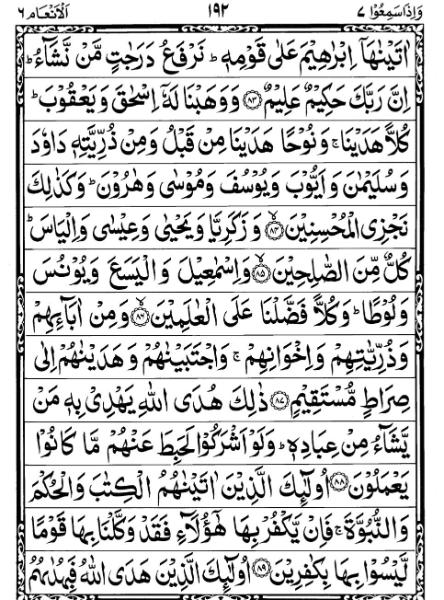 وَاِذَاسَمِعُوْا ٧ ١٩٢ اَلْاَنْعَام ٦
اٰتَيْنٰهَاۤ اِبْرٰهِيْمَ عَلٰى قَوْمِهٖ ؕ نَرْفَعُ دَرَجٰتٍ مَّنْ نَّشَآءُ ؕ
اِنَّ رَبَّكَ حَكِيْمٌ عَلِيْمٌ ﴿٨٣﴾ وَوَهَبْنَا لَهٗۤ اِسْحٰقَ وَيَعْقُوْبَ ؕ
كُلًّا هَدَيْنَا ۚ وَنُوْحًا هَدَيْنَا مِنْ قَبْلُ وَمِنْ ذُرِّيَّتِهٖ دَاوٗدَ
وَسُلَيْمٰنَ وَاَيُّوْبَ وَيُوْسُفَ وَمُوْسٰى وَهٰرُوْنَ ؕ وَكَذٰلِكَ
نَجْزِى الْمُحْسِنِيْنَ ﴿٨٤﴾ وَزَكَرِيَّا وَيَحْيٰى وَعِيْسٰى وَاِلْيَاسَ ؕ
كُلٌّ مِّنَ الصّٰلِحِيْنَ ﴿٨٥﴾ وَاِسْمٰعِيْلَ وَالْيَسَعَ وَيُوْنُسَ
وَلُوْطًا ؕ وَكُلًّا فَضَّلْنَا عَلَى الْعٰلَمِيْنَ ﴿٨٦﴾ وَمِنْ اٰبَآئِهِمْ
وَذُرِّيّٰتِهِمْ وَاِخْوَانِهِمْ ۚ وَاجْتَبَيْنٰهُمْ وَهَدَيْنٰهُمْ اِلٰى
صِرَاطٍ مُّسْتَقِيْمٍ ﴿٨٧﴾ ذٰلِكَ هُدَى اللّٰهِ يَهْدِىْ بِهٖ مَنْ
يَّشَآءُ مِنْ عِبَادِهٖ ؕ وَلَوْ اَشْرَكُوْا لَحَبِطَ عَنْهُمْ مَّا كَانُوْا
يَعْمَلُوْنَ ﴿٨٨﴾ اُولٰٓئِكَ الَّذِيْنَ اٰتَيْنٰهُمُ الْكِتٰبَ وَالْحُكْمَ
وَالنُّبُوَّةَ ۚ فَاِنْ يَّكْفُرْ بِهَا هٰٓؤُلَآءِ فَقَدْ وَكَّلْنَا بِهَا قَوْمًا
لَّيْسُوْا بِهَا بِكٰفِرِيْنَ ﴿٨٩﴾ اُولٰٓئِكَ الَّذِيْنَ هَدَى اللّٰهُ فَبِهُدٰىهُمُ